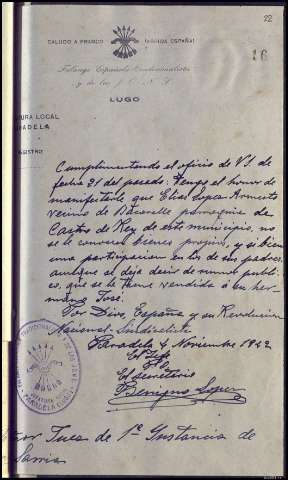 22
SALUDO A FRANCO
¡ARRIBA ESPAÑA!
16
Falange Española Tradicionalista
y de las J. O. N. S.
LUGO
URA LOCAL
ADELA
GISTRO
Cumplimentando el oficio de V.S. de
fecha 31 del pasado. Tengo el honor de
manifestarle que Elías Lopez Armesto
vecino de parroquia de
Castro de Rey de este municipio, no
se le conocen bienes propios, y si bien
una participacion en los de sus padres,
aunque el deja decir de rumor publi-
co, que se la tiene vendida á un her-
mano José.
Por Dios, España y su Revolucion
Nacional-Sindicalista
Paradela 4 Noviembre 1942
El Jefe
P.O.
El secretario
Benigno Lopez
Juez de 1ª Instancia de
Sarria